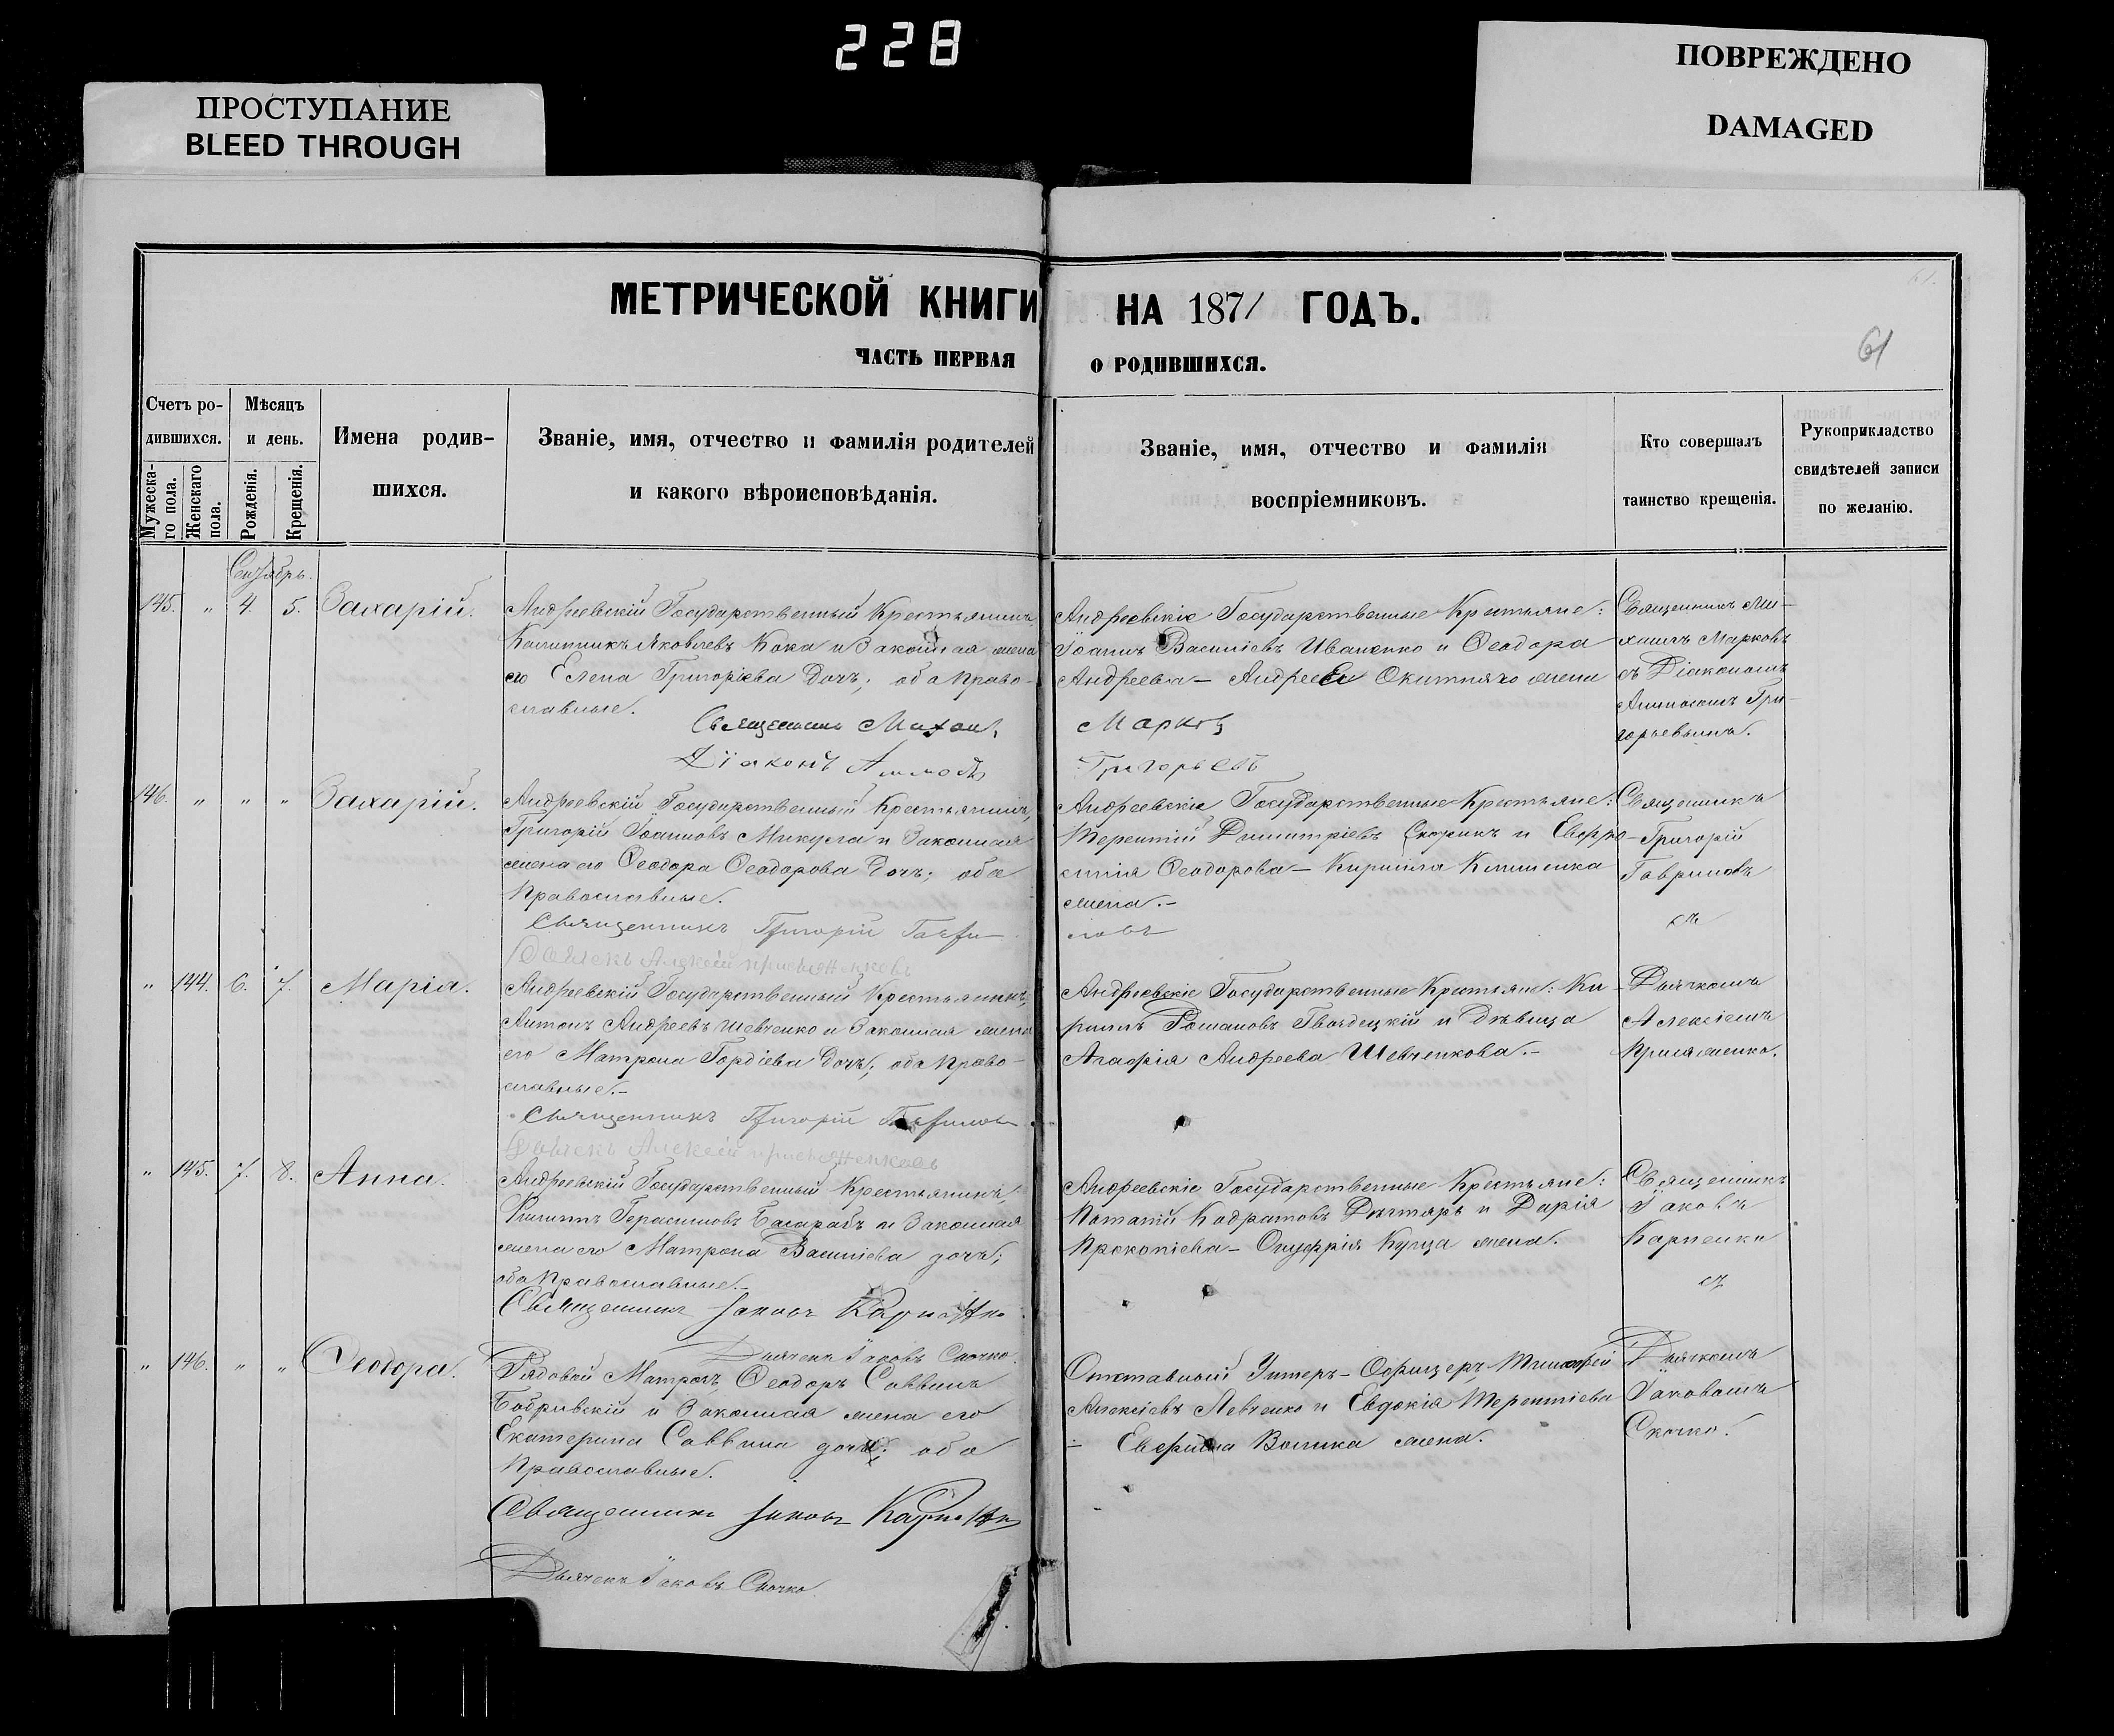 228
ПРОСТУПАНИЕ
BLEED THROUGH
ПОВРЕЖДЕНО
DAMAGED
МЕТРИЧЕСКОЙ КНИГИ НА 1871 ГОДЪ.
61
ЧАСТЬ ПЕРВАЯ О РОДИВШИХСЯ.
Счетъ ро-
дившихся.
Мужеска-
го пола.
Женскаго
пола.
Мѣсяцъ
и день.
Рожденія.
Крещенія.
Имена родив-
шихся.
Званіе, имя, отчество и фамилія родителей
и какого вѣроисповѣданія.
Званіе, имя, отчество и фамилія
воспріемниковъ.
Кто совершалъ
таинство крещенія.
Рукоприкладство
свидѣтелей записи
по желанію.
Сентябрь.
145. " 4. 5. Захарій.
Андреевскій Государственный Крестьянинъ
Калинникъ Яковлевъ Кока и Законная жена
его Елена Григоріева дочь; оба Право-
славные.
Священникъ Михаил
Діаконъ
Андреевскіе Государственные Крестьяне:
Іоаннъ Василіевъ Иваненко и Ѳеодора
Андреева – Андрея Окитняго жена
Марковъ
Григорьевъ
Священникъ Ми-
хаилъ Марковъ
съ Діакономъ
Гри-
горьевымъ.
146. " " " Захарій.
Андреевскій Государственный Крестьянинъ,
Григорій Іоанновъ Микула и Законная
жена его Ѳеодора Ѳеодорова дочь; оба
Православные.
Священникъ Григорій Гаври-
Дьячекъ Алексѣй
Андреевскіе Государственные Крестьяне:
Терентій Димитріевъ Скорикъ и Евфро-
синія Ѳеодорова – Кирилла Клименка
жена.–
ловъ
Священникъ
Григорій
Гавриловъ
съ
" 144. 6. 7. Марія.
Андреевскій Государственный Крестьянинъ,
Антонъ Андреевъ Шевченко и Законная жена
его Матрона Гордіева дочь; оба Право-
славные.–
Священникъ Григорій Гавриловъ
Дьячекъ Алексѣй
Андреевскіе Государственные Крестьяне: Ки-
риллъ Романовъ Гвоздецкій и Дѣвица
Агафія Андреева Шевченкова.–
Дьячкомъ
Алексіемъ
" 145. 7. 8. Анна.
Андреевскій Государственный Крестьянинъ,
Филиппъ Герасимовъ Басарабъ и Законная
жена его Матрона Василіева дочь;
оба Православные.
Священникъ Іаковъ Карпенко
Дьячекъ Іаковъ Скочко.
Андреевскіе Государственные Крестьяне:
Потапій Кодратовъ Дегтярь и Дарія
Прокопіева – Онуфрія Куца жена.
Священникъ
Іаковъ
Карпенко
съ
" 146. " " Ѳеодора.
Рядовой Матрозъ, Ѳеодоръ Саввинъ
Бобривскій и Законная жена его
Екатерина Саввина дочь; оба
Православные.
Священникъ Іаковъ Карпенко
Дьячекъ Іаковъ Скочко.
Отставный Унтеръ-Офицеръ Тимофей
Алексіевъ Левченко и Евдокія Терентіева
– Волика жена.
Дьячкомъ
Іаковомъ
Скочко.